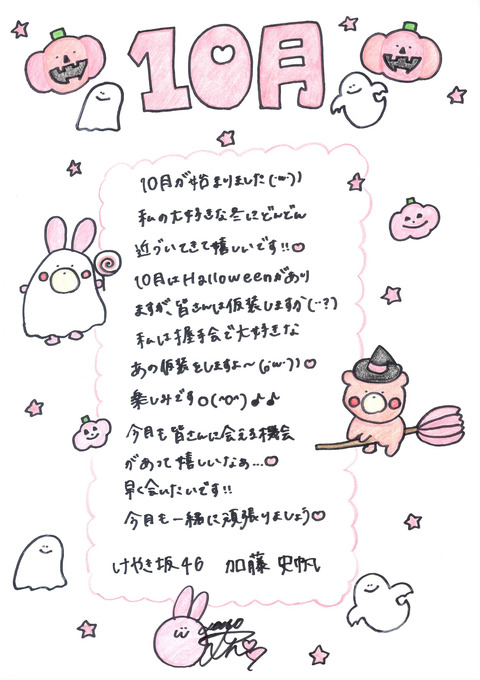 10月
10月が始まりました(˙ω˙)）
私の大好きな冬にどんどん
近づいてきて嬉しいです!!♡
10月はHalloweenがあり
ますが、皆さんは仮装しますか(˙˙?)
私は握手会で大好きな
あの仮装をしますよ〜(˙ω˙)）♡
楽しみですo(^o^)♪♪
今月も皆さんに会える機会
があって嬉しいなぁ...♡
早く会いたいです!!
今月も一緒に頑張りましょう♡
けやき坂46 加藤 史帆